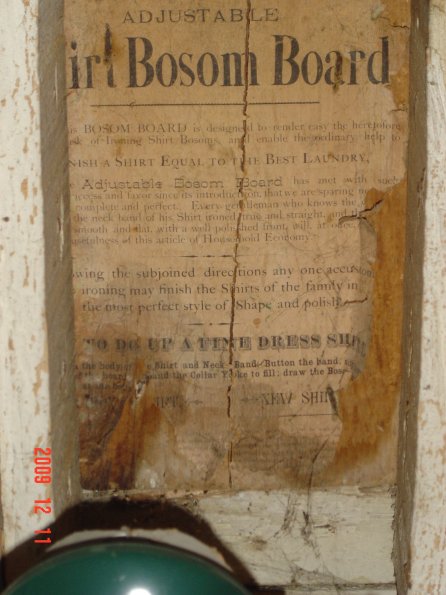 ADJUSTABLE
irt Bosom Board
is BOSOM BOARD is designed to render easy the heretofore
sk of Ironing Shirt Bosoms, and enable the ordinary help to
NISH A SHIRT EQUAL TO THE BEST LAUNDRY,
Adjustable Bosom Board has met with such
ccess and favor since its introduction, that we are sparing no
complete and perfect. Every gentleman who knows the
the neck band of his Shirt ironed true and straight, and
smooth and flat, with a well polished front, will, at once,
usefulness of this article of Household Economy
wing the subjoined directions any one accustom
ironing may finish the Shirts of the family in
the most perfect style of Shape and polish
TO DO UP A FINE DRESS SH
the body of the Shirt and Neck Band. Button the band,
board, and the Collar Yoke to fill; draw the Bos
NEW SHI
2009 12 11